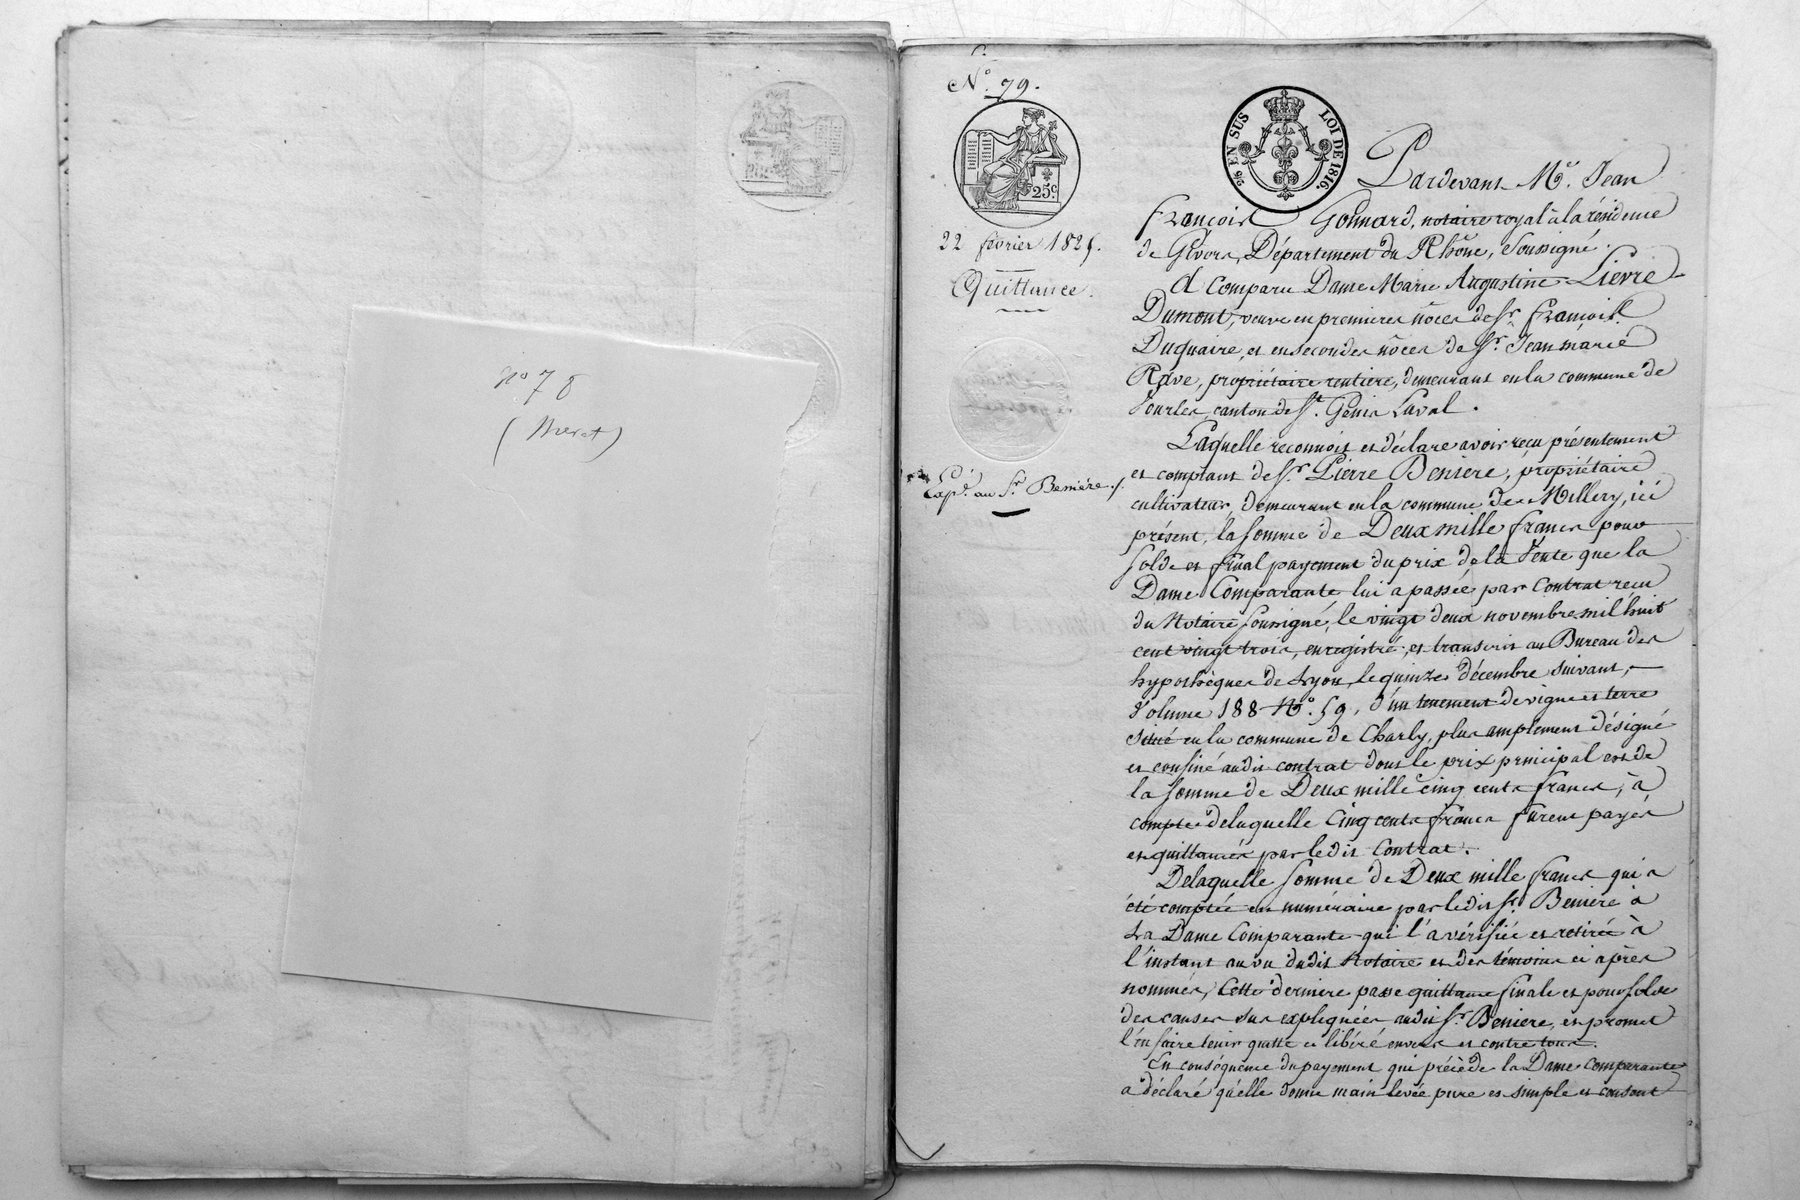 N° 78
(Meret)
N.° 79.
25 c.
26 EN SUS LOI DE 1816.
22 février 1825.
Quittance.
Expé. au Sr. Beniére./.
Pardevant Me. Jean
François Gonnard, notaire royal à la résidence
de Givors, Département du Rhône, soussigné.
A Comparu Dame Marie Augustine Lievre
Dumont, veuve en premieres nôces de Sr. François
Duquaire, et en secondes nôces de Sr. Jean marie
Rave, propriétaire rentiere, demeurant en la commune de
Vourles, canton de St. Génis Laval.
Laquelle reconnoit et déclare avoir reçu présentement
et comptant de Sr. Pierre Beniere, propriétaire
cultivateur, demeurant en la commune de Millery, ici
présent, la somme de Deux mille francs pour
solde et final payement du prix de la Vente que la
Dame Comparante lui a passée par Contrat reçu
du Notaire soussigné, le vingt deux novembre mil huit
cent vingt trois, enregistré, et transcrit au Bureau des
hypothèques de Lyon, le quinze décembre suivant,
Volume 188 N.° 59, d'un tenement de vigne et terre
situé en la commune de Charly, plus amplement désigné
et confiné audit contrat dont le prix principal est de
la somme de Deux mille cinq cents francs, à
compte de laquelle Cinq cents francs furent payés
et quittancés par ledit Contrat.
De laquelle somme de Deux mille francs qui a
été comptée en numéraire par ledit Sr. Beniere à
La Dame Comparante qui l'a vérifiée et retirée à
l'instant au vu dudit Notaire et des témoins ci après
nommés, Cette derniere passe quittance finale et pour solde
des causes sus expliquées audit Sr. Beniere, et promet
l'en faire tenir quitte et libéré envers et contre tous.
En conséquence du payement qui précède la Dame Comparante
a déclaré qu'elle donne main levée pure et simple et consent